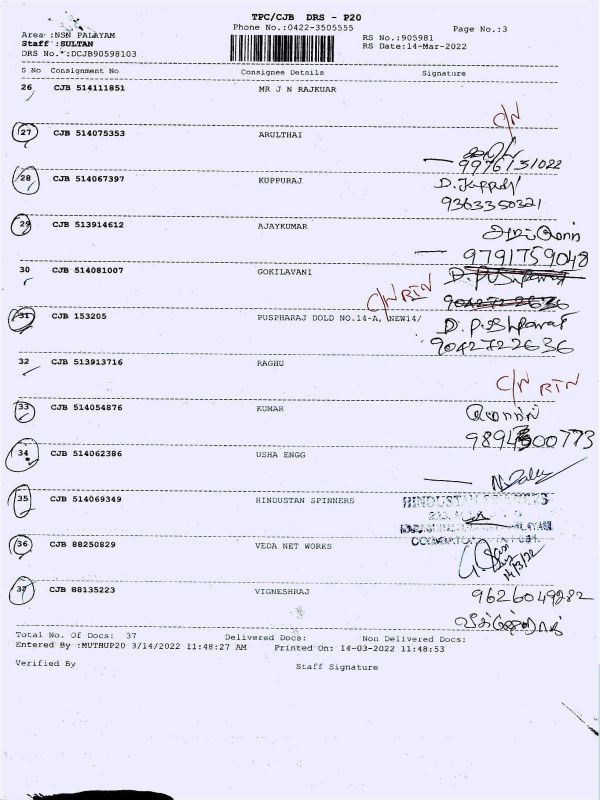 TPC/CJB DRS - P20
Phone No.:0422-3505555
Page No.:3
Area :NSN PALAYAM
Staff :SULTAN
DRS No.*:DCJB90598103
RS No.:905981
RS Date:14-Mar-2022
S No Consignment No Consignee Details Signature
26 CJB 514111851 MR J N RAJKUAR
C/N
27 CJB 514075353 ARULTHAI
9976131022
28 CJB 514067397 KUPPURAJ
9363350321
29 CJB 513914612 AJAYKUMAR
9791759048
30 CJB 514081007 GOKILAVANI
C/N RTN
9042722636
31 CJB 153205 PUSPHARAJ DOLD NO.14-A, NEW14/
9042722636
32 CJB 513913716 RAGHU
C/N RTN
33 CJB 514054876 KUMAR
34 CJB 514062386 USHA ENGG
35 CJB 514069349 HINDUSTAN SPINNERS
36 CJB 88250829 VEDA NET WORKS
14/3/22
37 CJB 88135223 VIGNESHRAJ
9626049282
Total No. Of Docs: 37 Delivered Docs: Non Delivered Docs:
Entered By :MUTHUP20 3/14/2022 11:48:27 AM Printed On: 14-03-2022 11:48:53
Verified By
Staff Signature